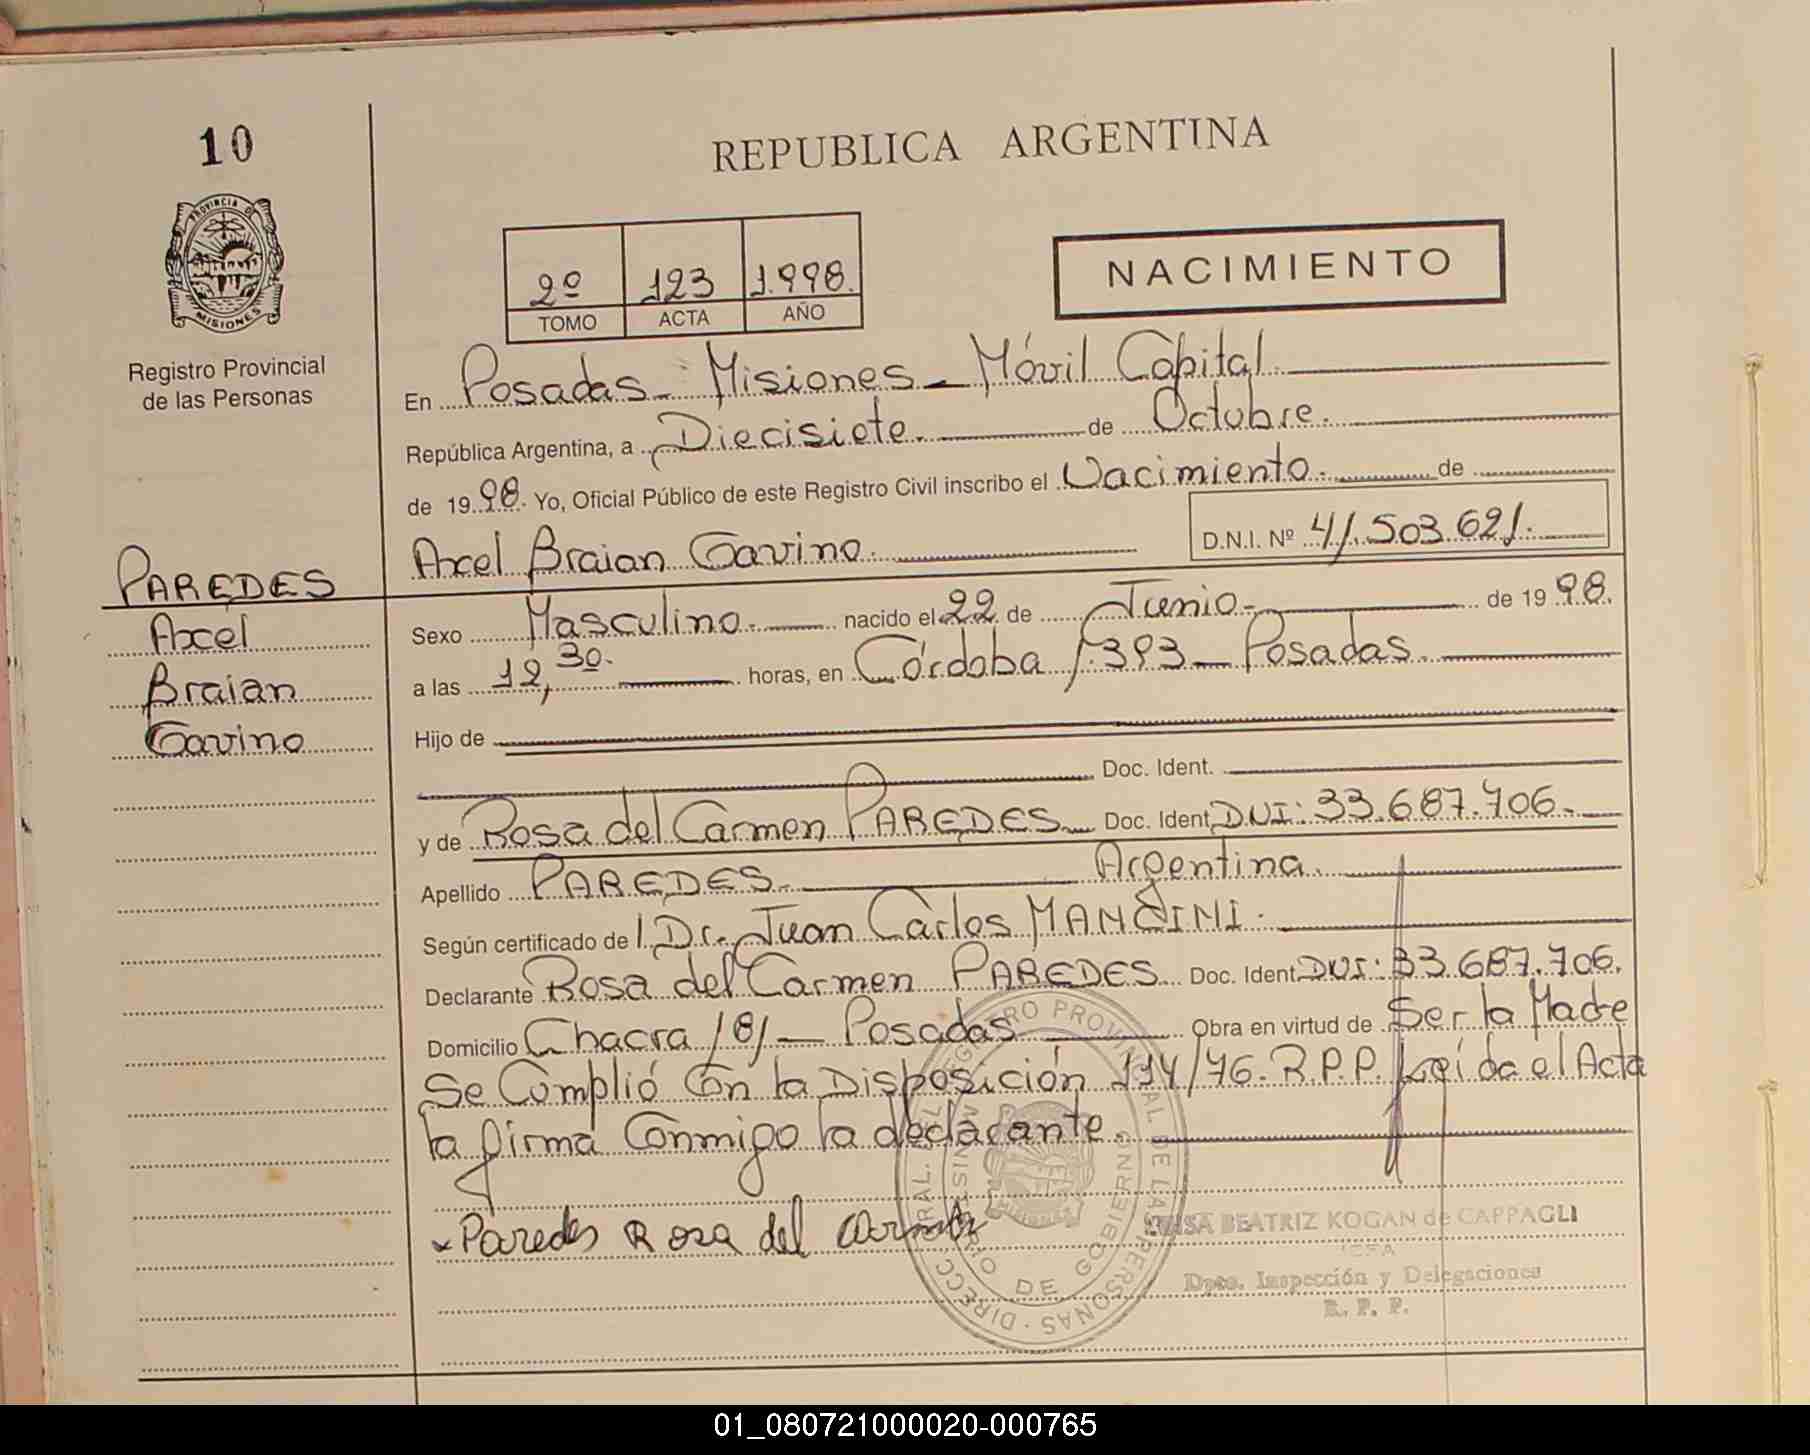 10
REPUBLICA ARGENTINA
PROVINCIA DE
MISIONES
Registro Provincial
de las Personas
2º 123 1.998.
TOMO ACTA AÑO
NACIMIENTO
En Posadas - Misiones - Móvil Capital.
República Argentina, a Diecisiete. de Octubre.
de 1998. Yo, Oficial Público de este Registro Civil inscribo el Nacimiento. de
Axel Braian Gavino. D.N.I. Nº 41.503.621.
PAREDES
Axel
Braian
Gavino
Sexo Masculino. nacido el 22 de Junio. de 1998.
a las 12,30. horas, en Córdoba 1393 - Posadas.
Hijo de
Doc. Ident.
y de Rosa del Carmen PAREDES Doc. Ident. DNI: 33.687.706.
Apellido PAREDES. Argentina.
Según certificado de Dr. Juan Carlos MANCINI.
Declarante Rosa del Carmen PAREDES Doc. Ident. DNI: 33.687.706.
Domicilio Chacra 181 - Posadas Obra en virtud de Ser la Madre
Se Complió Con la Disposición 114/76. R.P.P. Leída el Acta
la firma Conmigo la declarante.
Paredes Rosa del Carmen
BEATRIZ KOGAN de CAPPAGLI
Dpto. Inspección y Delegaciones
R. P. P.
01_080721000020-000765